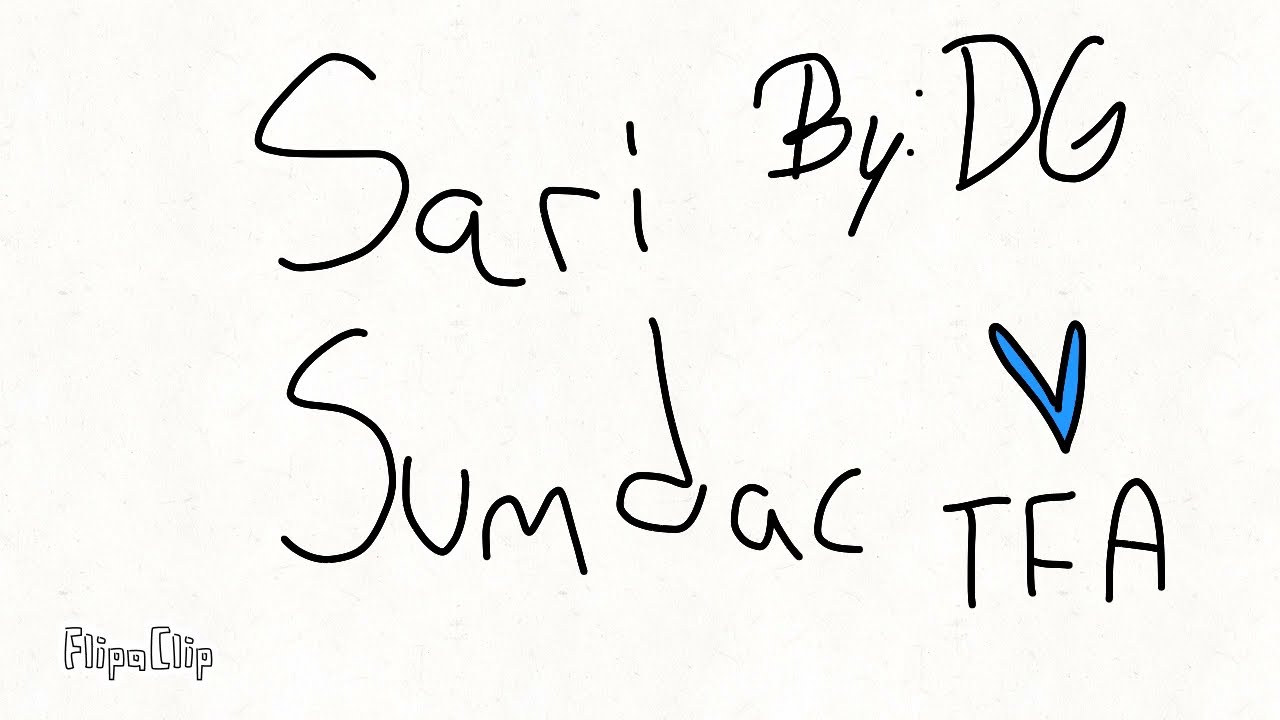 Sari
By: DG
Sumdac
TFA
FlipaClip